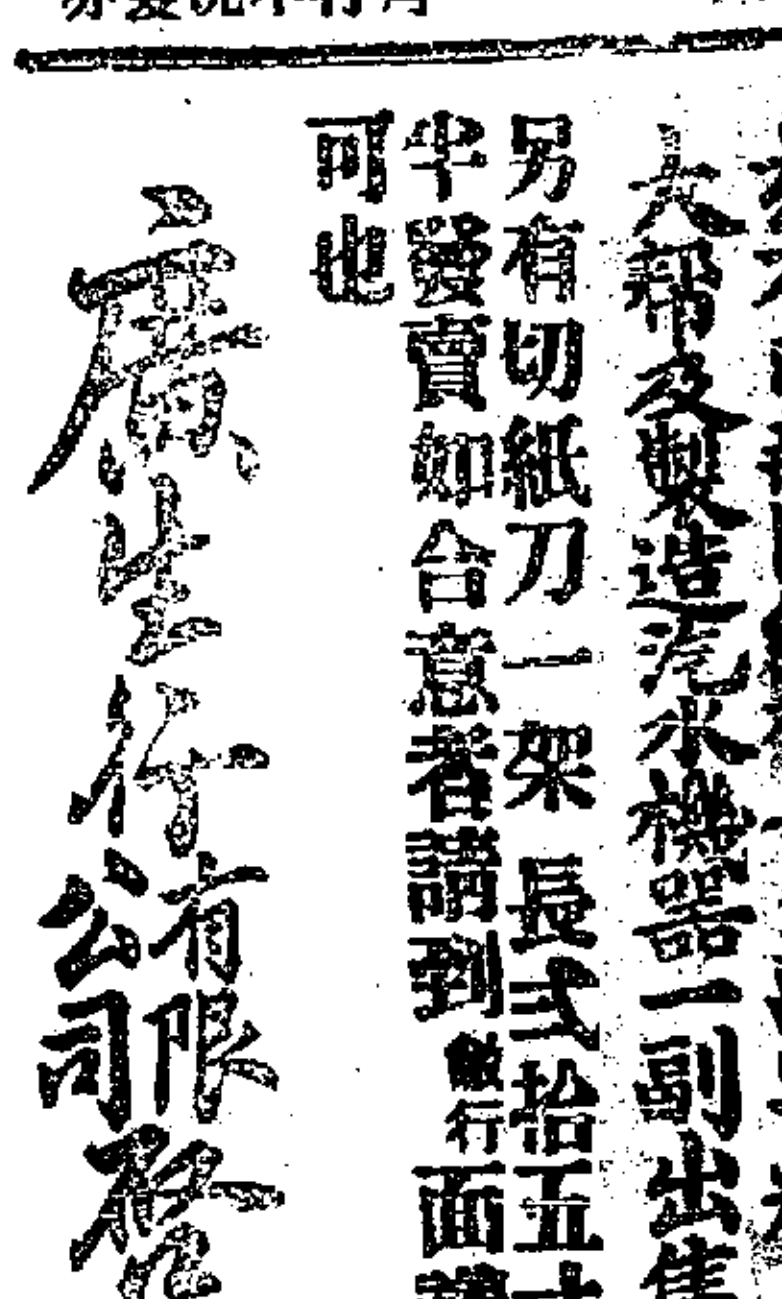 大幫及製造汽水機器一副出售
另有切紙刀一架 長弍拾五寸
半發賣如合意者請到敝行面議
可也
廣生行有限公司啓